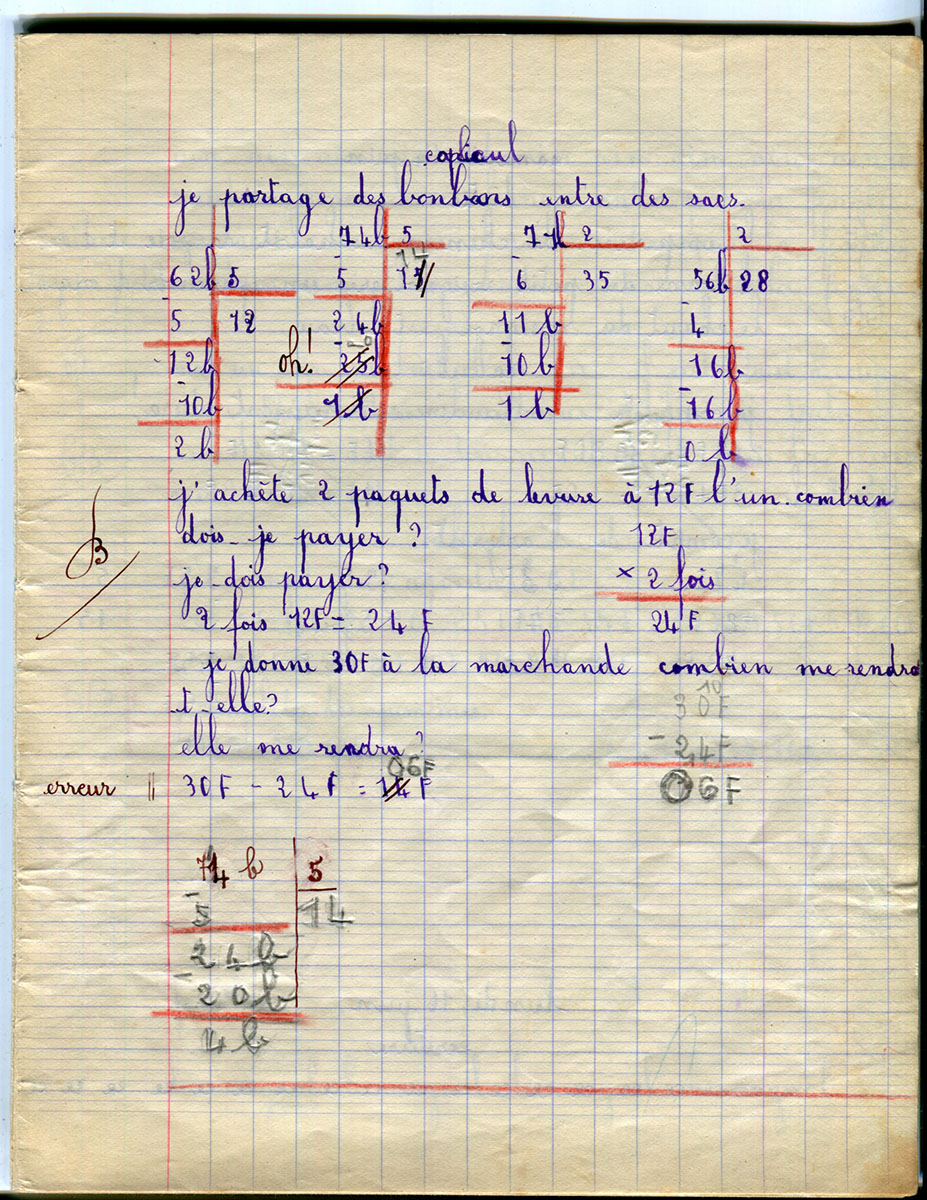 je partage des bonbons entre des sacs.
74b 5 71b 2 2
14
62b 5 - 5 15 - 6 35 56b 28
- 5 12 24b 11b - 4
12b oh! - 25b - 20 - 10b 16b
- 10b 1b 1b - 16b
2b 0b
j'achète 2 paquets de levure à 12F l'un. combien
dois-je payer ? 12F
je dois payer? × 2 fois
2 fois 12F = 24F 24F
je donne 30F à la marchande combien me rendra
t-elle? 10
30F
elle me rendra ? - 24F
06F
erreur || 30F - 24F = 14F 06F
74b 5
- 5 14
24b
- 20b
4b